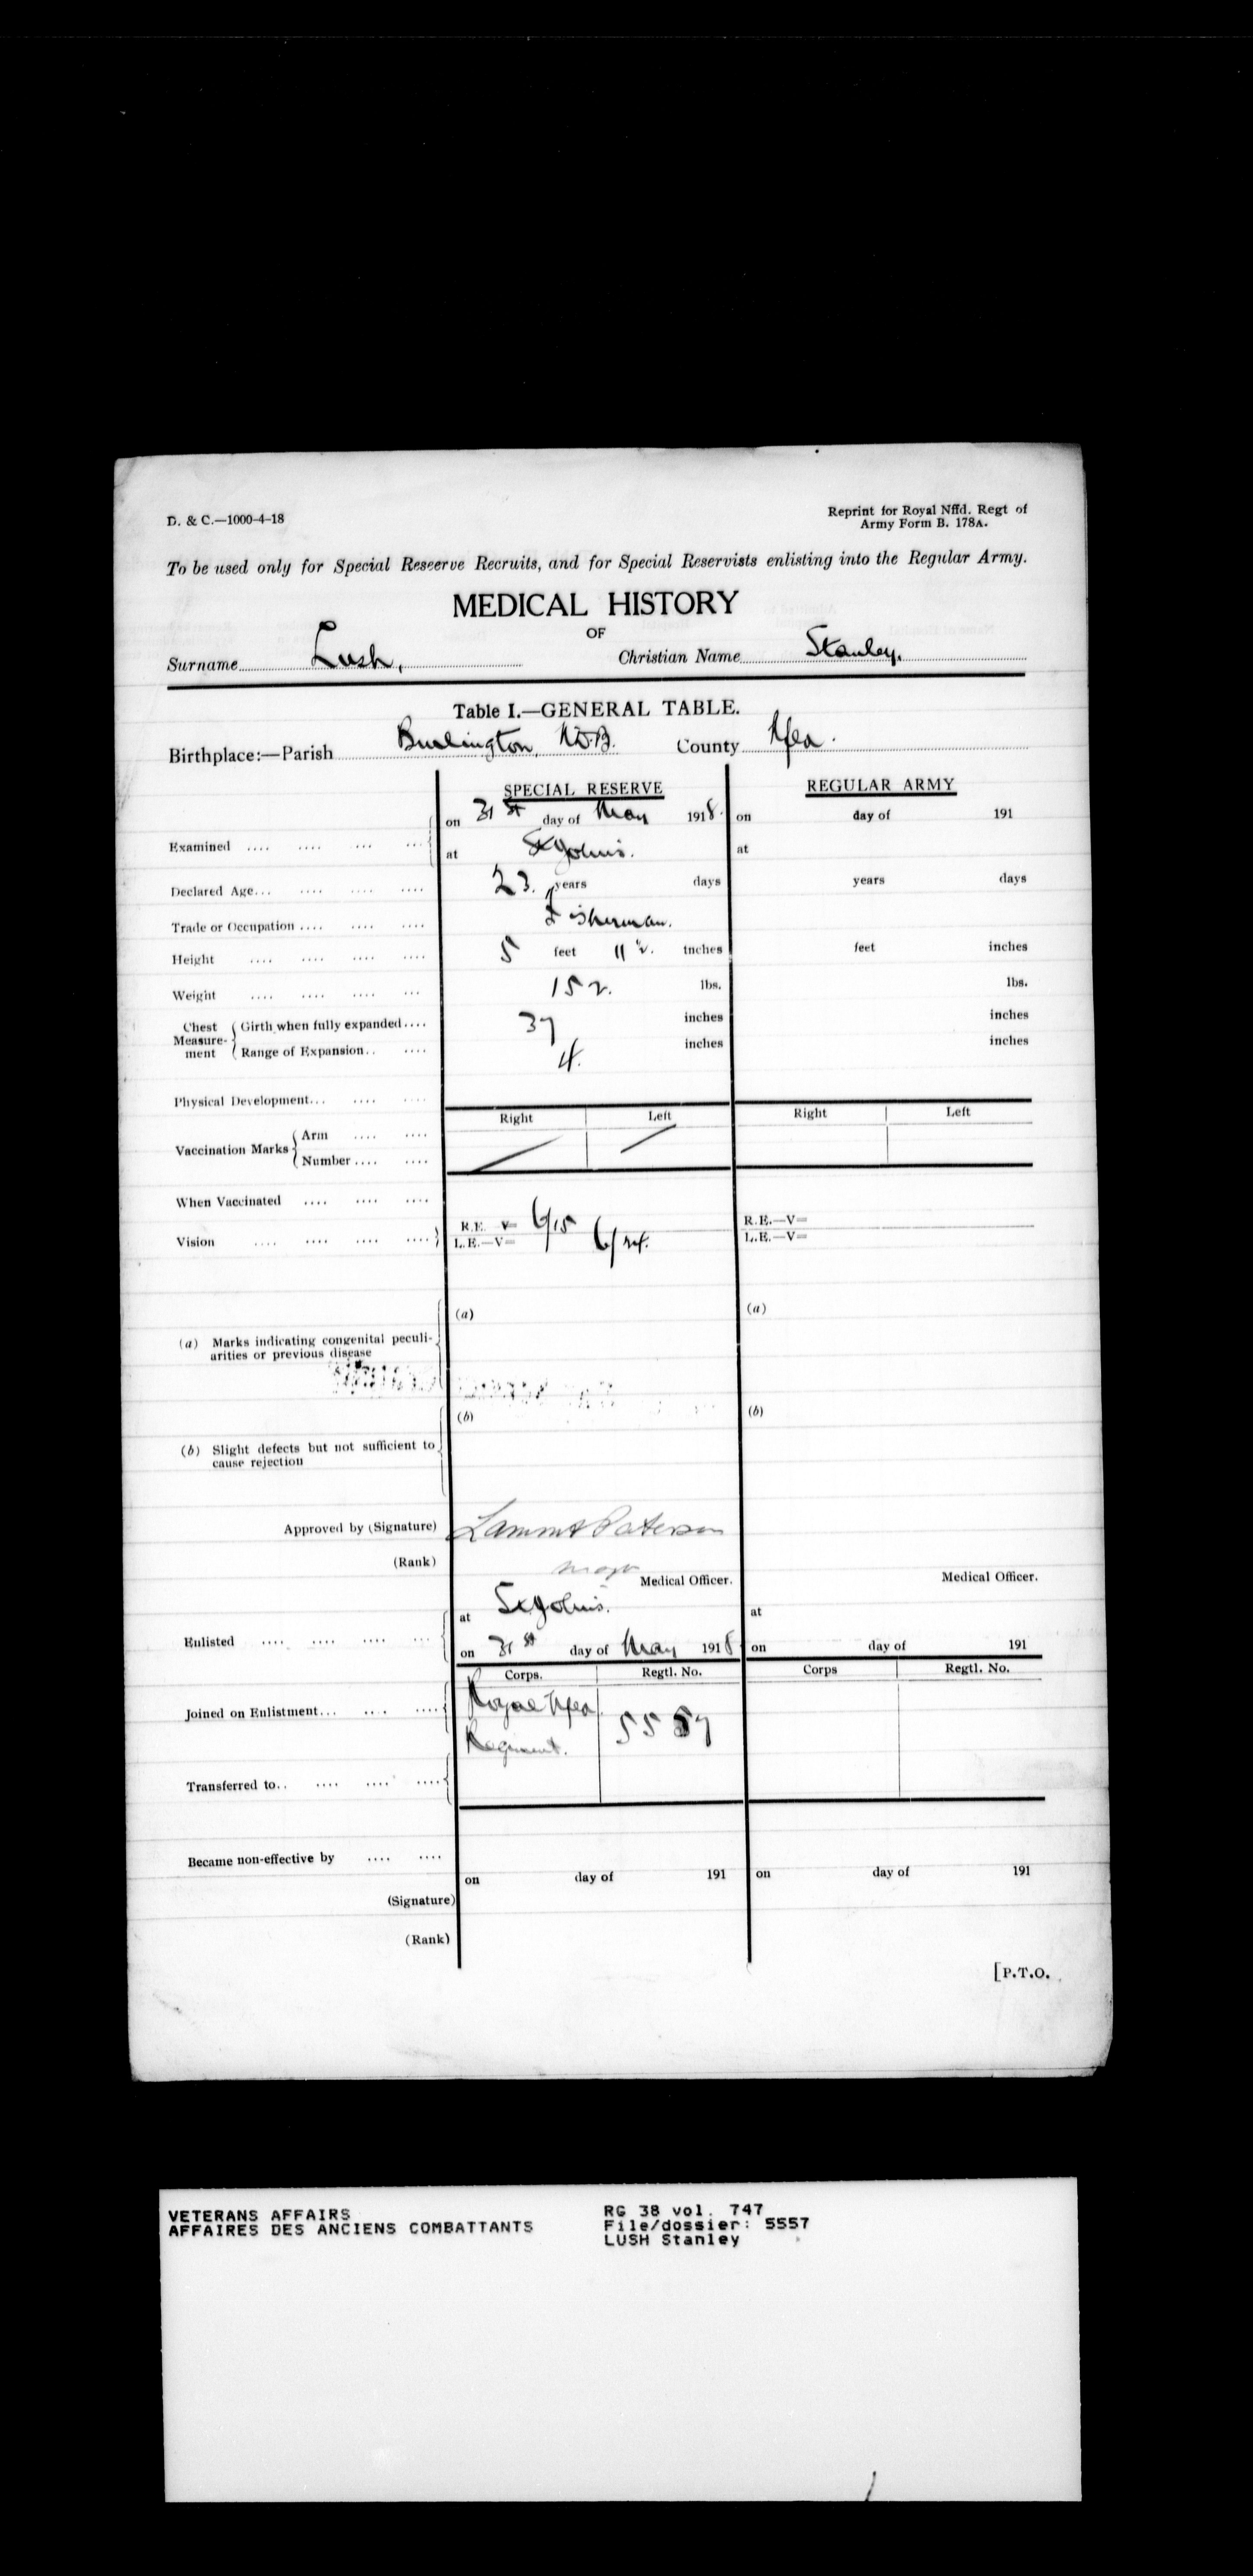 D. & C.—1000-4-18
Reprint for Royal Nffd. Regt of
Army Form B. 178A.
To be used only for Special Reseerve Recruits, and for Special Reservists enlisting into the Regular Army.
MEDICAL HISTORY
OF
Surname Lush, Christian Name Stanley.
Table I.—GENERAL TABLE.
Birthplace:—Parish Burlington, N.D.B. County Nfld.
SPECIAL RESERVE REGULAR ARMY
on 31st day of May 1918. on day of 191
Examined .... .... .... ....
at St Johns. at
Declared Age... .... .... .... 23. years days years days
Trade or Occupation .... .... .... Fisherman.
Height .... .... .... .... 5 feet 11 ½. Inches feet inches
Weight .... .... .... .... 152. lbs. lbs.
Chest Measurement Girth when fully expanded .... 37 inches inches
Range of Expansion .. .... 4. inches inches
Physical Development... .... ....
Right Left Right Left
Vaccination Marks Arm .... ....
Number .... ....
When Vaccinated .... .... ....
R.E. V= 6/15 R.E.—V=
Vision .... .... .... ....
L.E.—V= 6/24. L.E.—V=
(a) (a)
(a) Marks indicating congenital peculi-
arities or previous disease
(b) (b)
(b) Slight defects but not sufficient to
cause rejection
Approved by (Signature) Paterson
(Rank) Major
Medical Officer. Medical Officer.
at St Johns. at
Enlisted .... .... .... ....
on 31st day of May 1918 on day of 191
Corps. Regtl. No. Corps Regtl. No.
Joined on Enlistment... .... .... Royal Nfld. 5557
Regiment.
Transferred to.. .... .... ....
Became non-effective by .... ....
on day of 191 on day of 191
(Signature)
(Rank)
[P.T.O.
VETERANS AFFAIRS RG 38 vol. 747
AFFAIRES DES ANCIENS COMBATTANTS File/dossier: 5557
LUSH Stanley